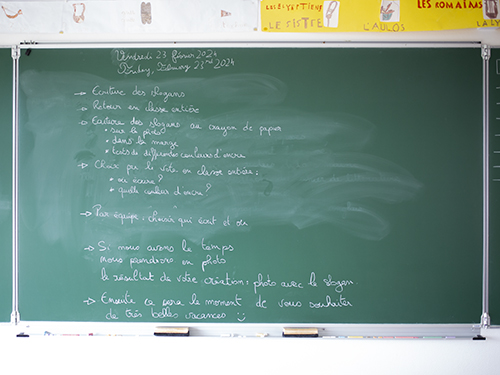 LES EGYPTIENS
LE SISTRE
L'AULOS
LES ROMAINS
LA LY
Vendredi 23 février 2024
Friday, February 23rd 2024
→ Ecriture des slogans
→ Retour en classe entière
→ Ecriture des slogans au crayon de papier
* sur la photo
* dans la marge
* tests de différentes couleurs d'encre
→ Choix par le vote en classe entière :
* où écrire ?
* quelle couleur d'encre ?
→ Par équipe, choisir qui écrit et où
→ Si nous avons le temps
nous prendrons en photo
le résultat de votre création : photo avec le slogan
→ Ensuite ce sera le moment de vous souhaiter
de très belles vacances :)